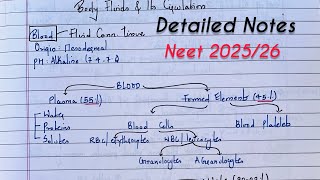 Body Fluids & Its Circulation
Detailed Notes
Neet 2025/26
Blood → Fluid Conn. Tissue
Origin: Mesodermal
PH: Alkaline (7.4
BLOOD
Plasma (55%)
Formed Elements (45%)
Water
Proteins
Solutes
Blood Cells
Blood Platelets
RBC/erythrocytes
WBC/leucocytes
Granulocytes
AGranulocytes